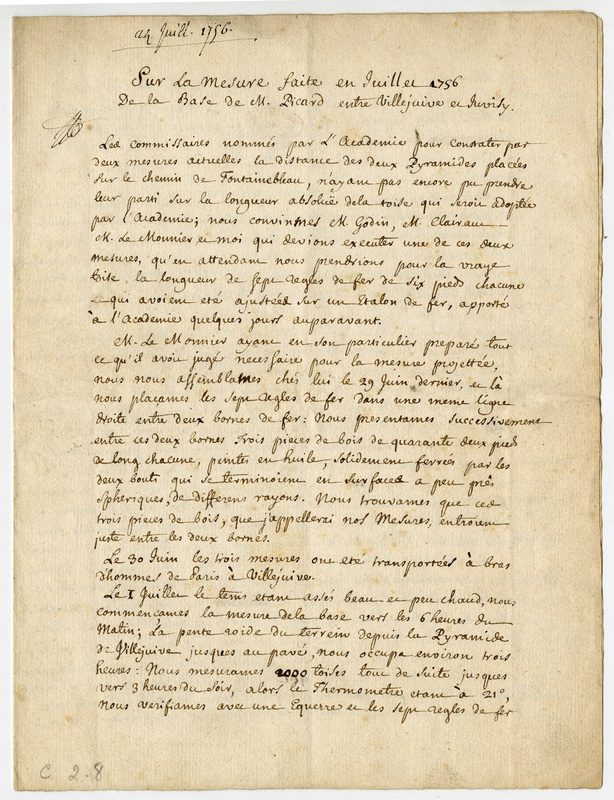 24 Juill. 1756.
Sur La Mesure faite en Juillet 1756
De la Base de M. Picard entre Villejuive et Juvisy.
Les commissaires nommés par L'Academie pour constater par
deux mesures actuelles la distance des deux Pyramides placées
sur le chemin de Fontainebleau, n'ayant pas encore pu prendre
leur parti sur la longueur absolüe dela toise qui seroit adoptée
par l'Academie; nous convinmes M. Godin, M. Clairaut
M. Le Monnier et moi qui devions executer une de ces deux
mesures, qu'en attendant nous prendrions pour la vraye
toise, la longueur de sept regles de fer de six pieds chacune
et qui avoient eté ajustées sur un Etalon de fer, apporté
à l'Academie quelques jours auparavant.
M. Le Monnier ayant en son particulier preparé tout
ce qu'il avoit jugé necessaire pour la mesure projettée,
nous nous assemblames chés lui le 29 Juin dernier, et là
nous plaçames les sept regles de fer dans une meme ligne
droite entre deux bornes de fer: Nous presentames successivement
entre ces deux bornes trois pieces de bois de quarante deux pieds
de long chacune, peintes en huile, solidement ferrées par les
deux bouts qui se terminoient en surfaces a peu près
spheriques, de differens rayons. Nous trouvames que ces
trois pieces de bois, que j'appellerai nos Mesures, entroient
juste entre les deux bornes.
Le 30 Juin les trois mesures ont eté transportées à bras
d'hommes de Paris à Villejuive.
Le 1 Juillet le tems etant assés beau et peu chaud, nous
commençames la mesure dela base vers les 6 heures du
Matin; La pente roide du terrein depuis la Pyramide
de Villejuive jusques au pavé, nous occupa environ trois
heures: Nous mesurames 1000 toises tout de suite jusques
vers 3 heures du soir, alors le Thermometre etant à 21°,
nous verifiames avec une Equerre et les sept regles de fer
C 2.8